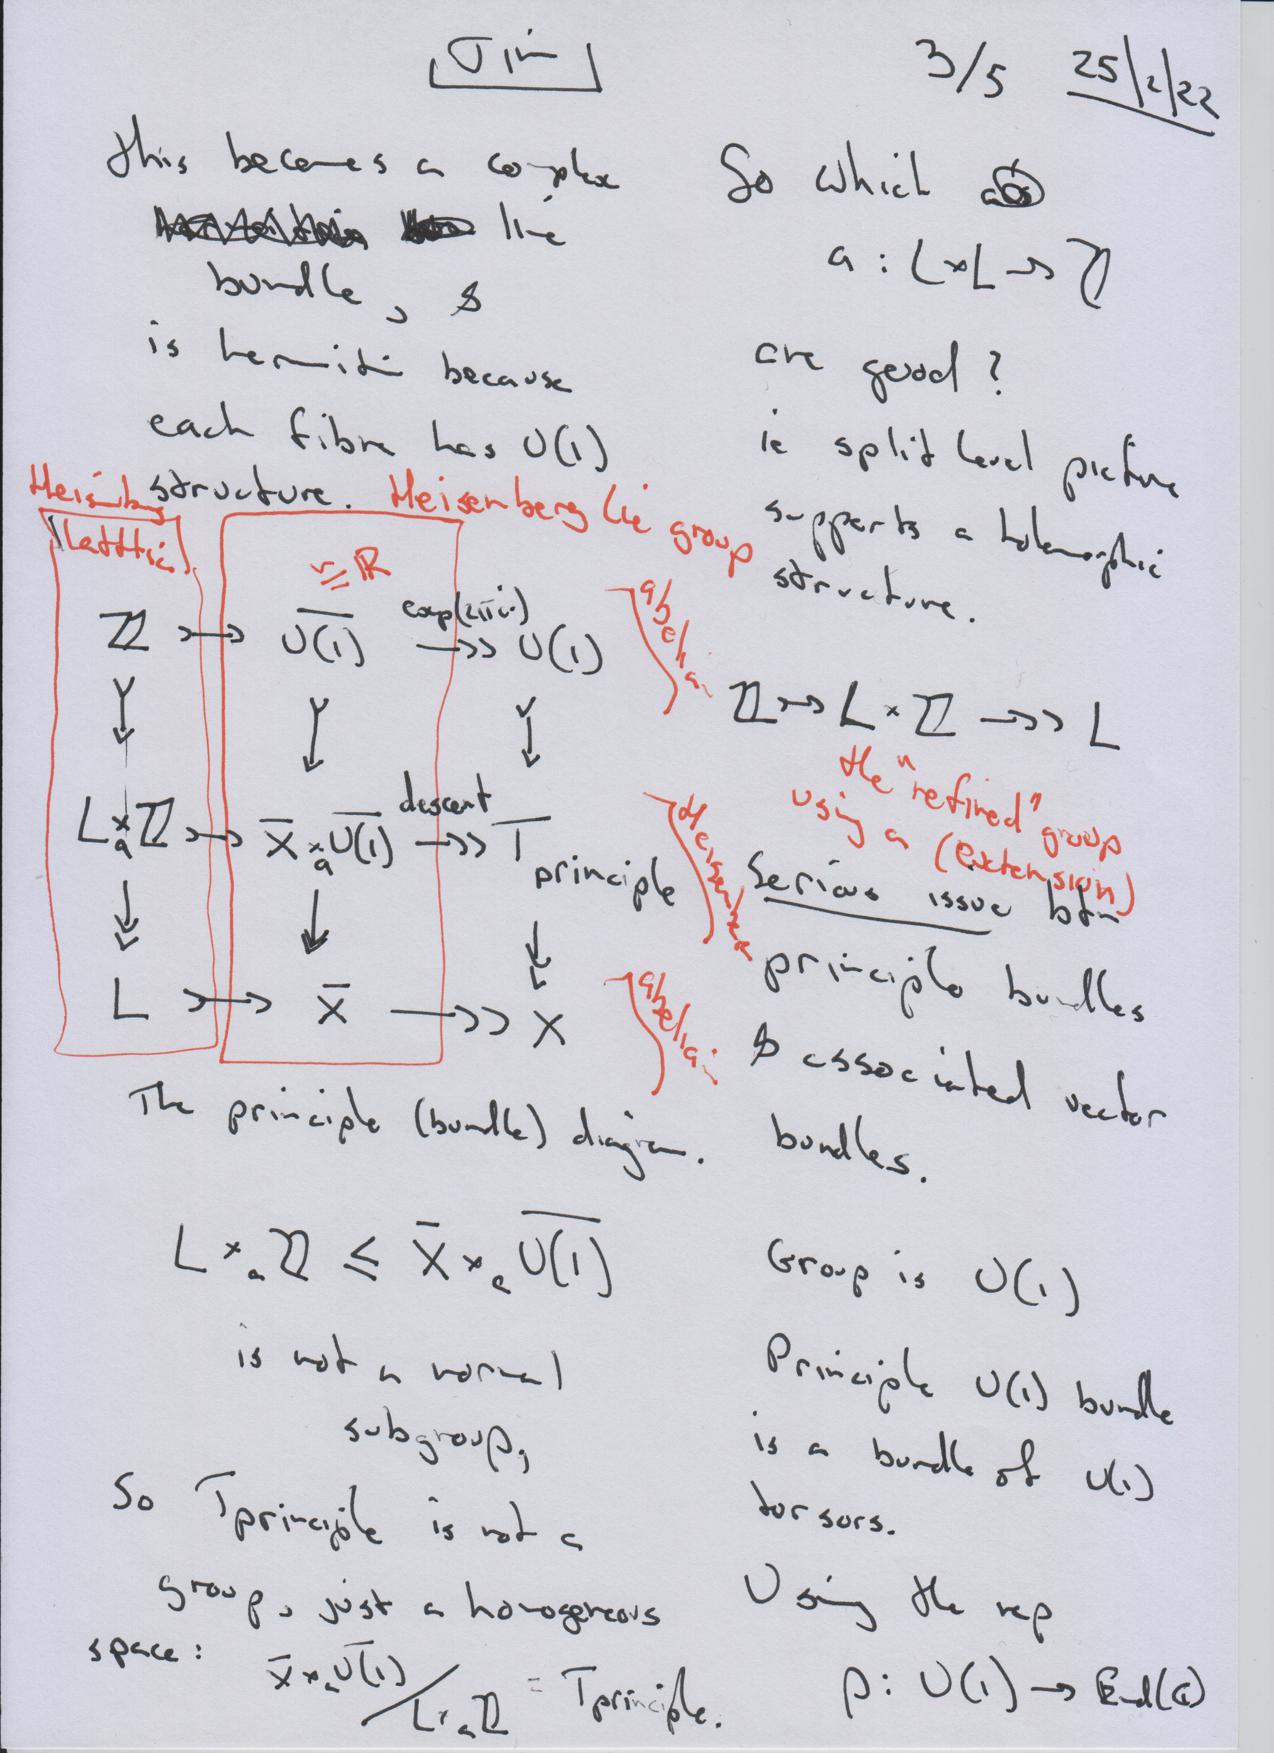 Jim
3/5 25/2/22
this becomes a complex
line
bundle, &
is hermiti because
each fibre has U(1)
structure.
Heisenberg Lie group
≅ ℝ
ℤ ↣ U(1) exp(2πi·) ↠ U(1)
abelian
L ×ₐ ℤ ↣ X̄ ×ₐ U(1) descent ↠ T principle
Heisenberg
L ↣ X̄ ↠ X
abelian
The principle (bundle) diagram.
L ×ₐ ℤ ≤ X̄ ×ₐ U(1)
is not a normal
subgroup,
So Tprinciple is not a
group, just a homogeneous
space: X̄ ×ₐ U(1) / L ×ₐ ℤ = Tprinciple.
So which
a : L×L → ℤ
are good?
ie split level picture
supports a holomorphic
structure.
ℤ ↣ L × ℤ ↠ L
the "refined" group
using a (extension)
Serious issue btn
principle bundles
& associated vector
bundles.
Group is U(1)
Principle U(1) bundle
is a bundle of U(1)
torsors.
Using the rep
ρ : U(1) → End(ℂ)